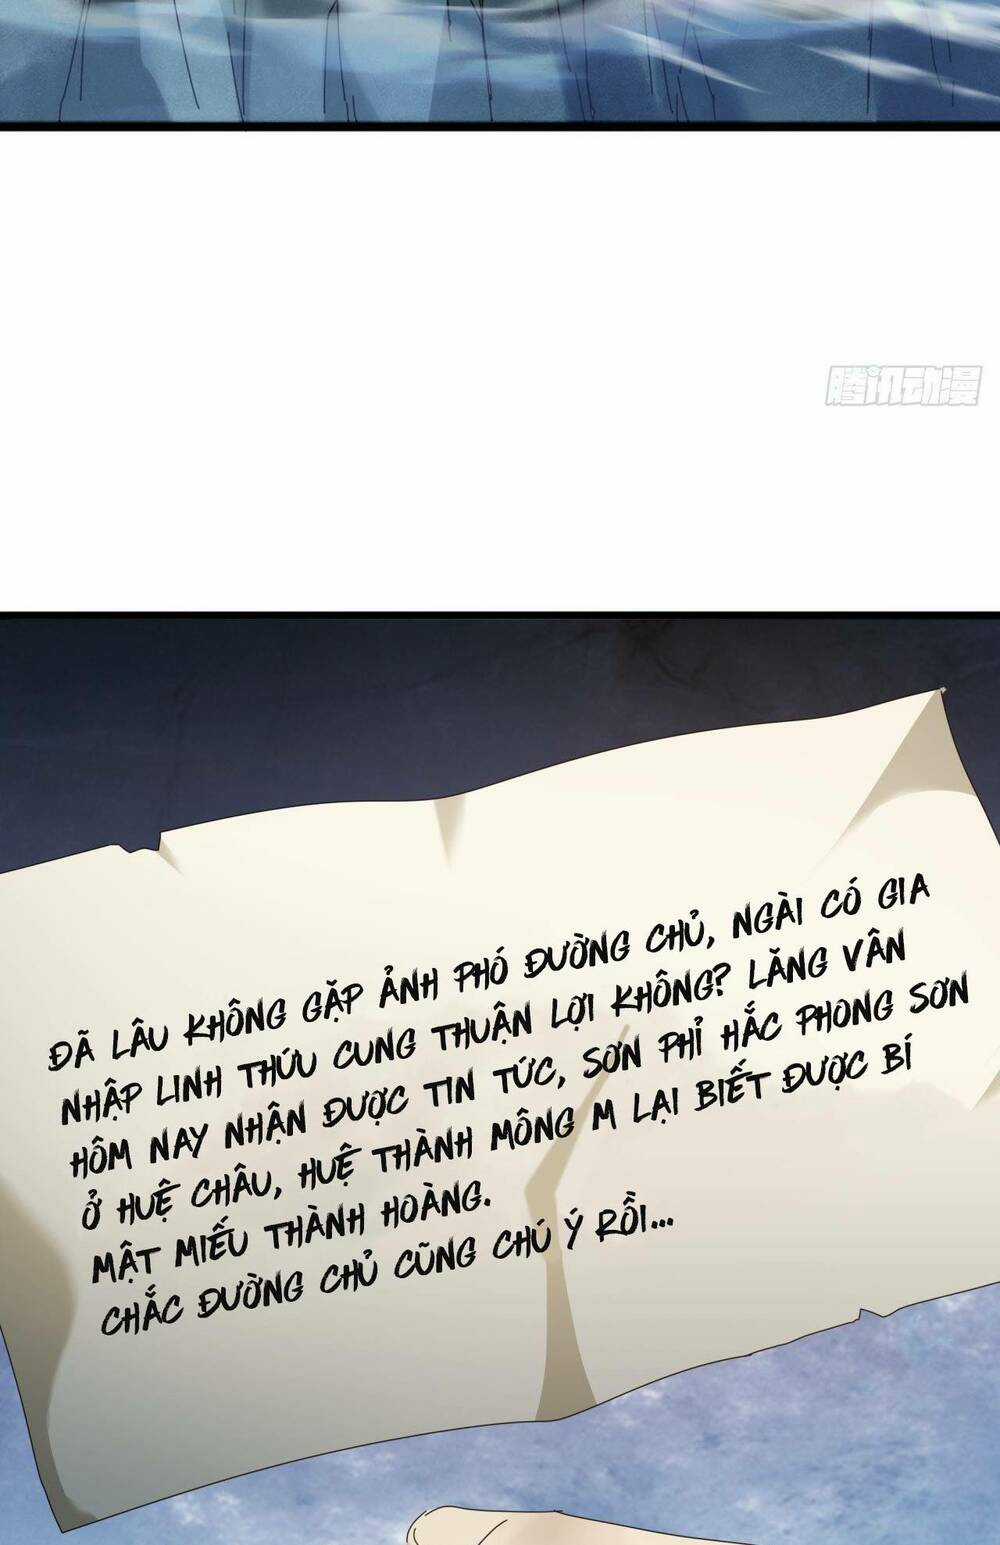 腾讯动漫
ĐÃ LÂU KHÔNG GẶP ẢNH PHÓ ĐƯỜNG CHỦ, NGÀI CÓ GIA
NHẬP LINH THỨU CUNG THUẬN LỢI KHÔNG? LĂNG VÂN
HÔM NAY NHẬN ĐƯỢC TIN TỨC, SƠN PHỈ HẮC PHONG SƠN
Ở HUỆ CHÂU, HUỆ THÀNH MÔNG M LẠI BIẾT ĐƯỢC BÍ
MẬT MIẾU THÀNH HOÀNG.
CHẮC ĐƯỜNG CHỦ CŨNG CHÚ Ý RỒI...